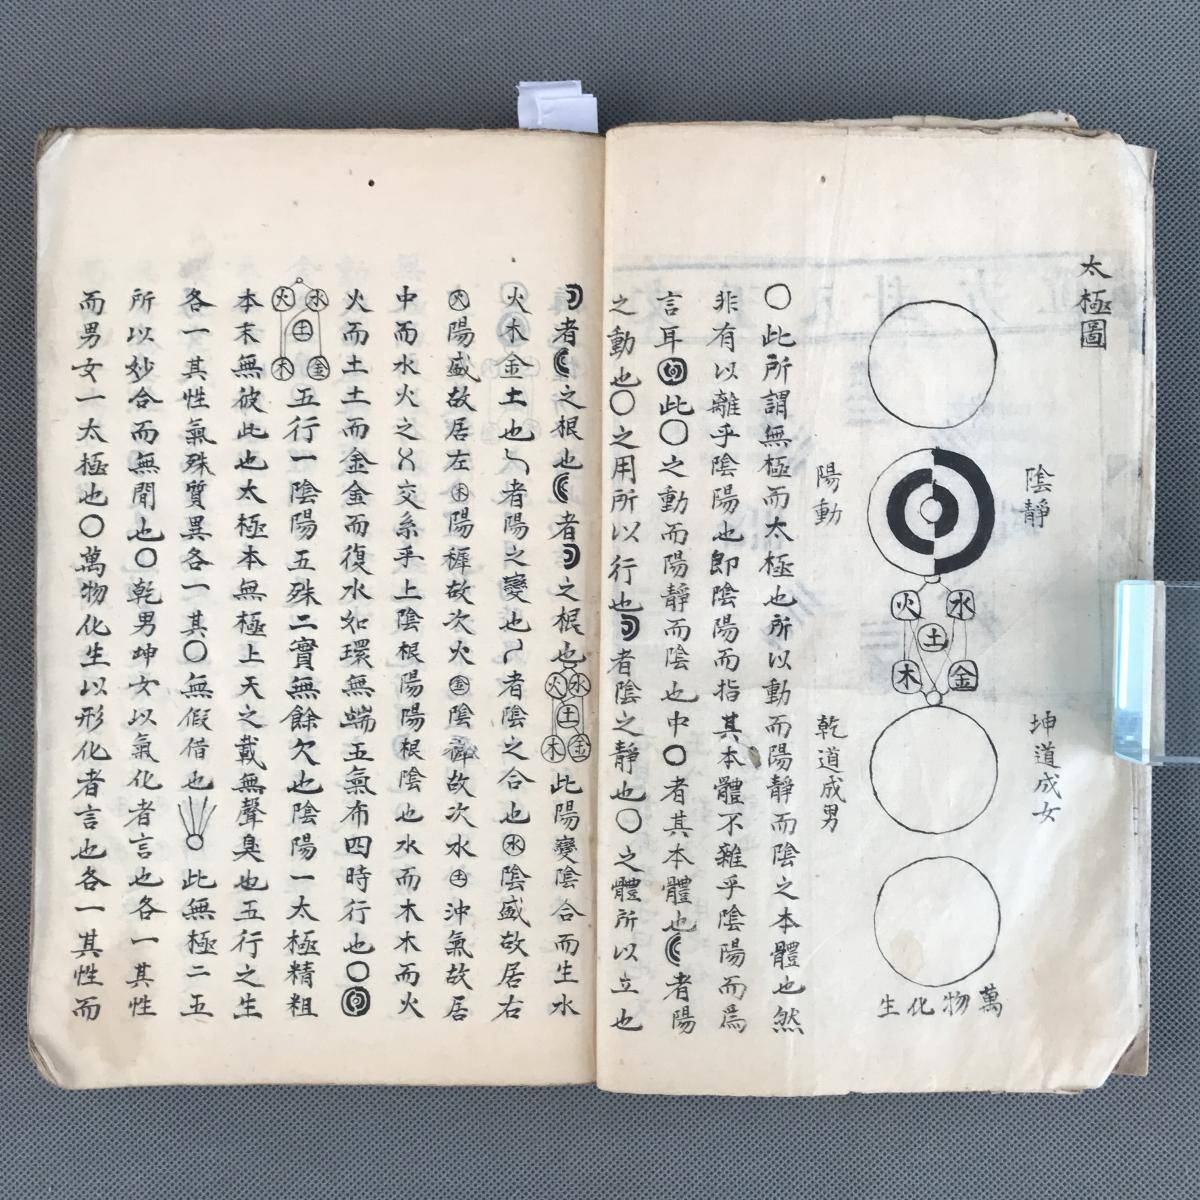 太極圖
陰靜
陽動
水
火
土
金
木
坤道成女
乾道成男
萬物化生
〇此所謂無極而太極也所以動而陽靜而陰之本體也然
非有以離乎陰陽也即陰陽而指其本體不雜乎陰陽而爲
言耳此〇之動而陽靜而陰也中〇者其本體也者陽
之動也〇之用所以行也者陰之靜也〇之體所以立也
者之根也者之根也水火土金木此陽變陰合而生水
火木金土也乀者陽之變也丿者陰之合也水陰盛故居右
火陽盛故居左木陽穉故次火金陰穉故次水土沖氣故居
中而水火之乂交系乎上陰根陽陽根陰也水而木木而火
火而土土而金金而復水如環無端五氣布四時行也〇
水火土金木五行一陰陽五殊二實無餘欠也陰陽一太極精粗
本末無彼此也太極本無極上天之載無聲臭也五行之生
各一其性氣殊質異各一其〇無假借也此無極二五
所以妙合而無間也〇乾男坤女以氣化者言也各一其性
而男女一太極也〇萬物化生以形化者言也各一其性而